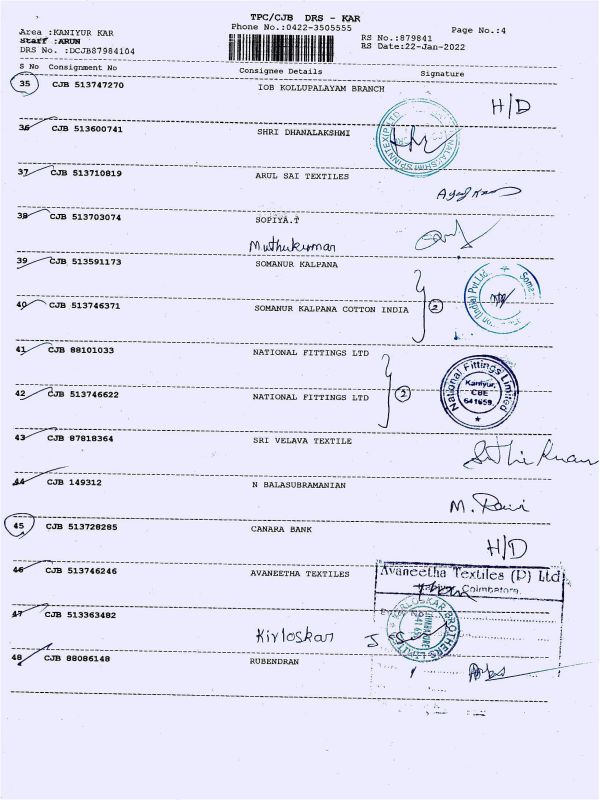 TPC/CJB DRS - KAR
Phone No.:0422-3505555
Page No.:4
Area :KANIYUR KAR
Staff :ARUN
DRS No. :DCJB87984104
RS No.:879841
RS Date:22-Jan-2022
S No Consignment No Consignee Details Signature
35 CJB 513747270 IOB KOLLUPALAYAM BRANCH H/D
36 CJB 513600741 SHRI DHANALAKSHMI
37 CJB 513710819 ARUL SAI TEXTILES
38 CJB 513703074 SOPIYA.T
Muthukumar
39 CJB 513591173 SOMANUR KALPANA
40 CJB 513746371 SOMANUR KALPANA COTTON INDIA 2
41 CJB 88101033 NATIONAL FITTINGS LTD
42 CJB 513746622 NATIONAL FITTINGS LTD 2
National Fittings Limited
Kaniyur,
CBE
641659.
43 CJB 87818364 SRI VELAVA TEXTILE
44 CJB 149312 N BALASUBRAMANIAN
M. Ravi
45 CJB 513728285 CANARA BANK H/D
46 CJB 513746246 AVANEETHA TEXTILES
Avaneetha Textiles (P) Ltd
Coimbatore.
47 CJB 513363482
Kirloskar
KIRLOSKAR BROTHERS LIMITED
48 CJB 88086148 RUBENDRAN